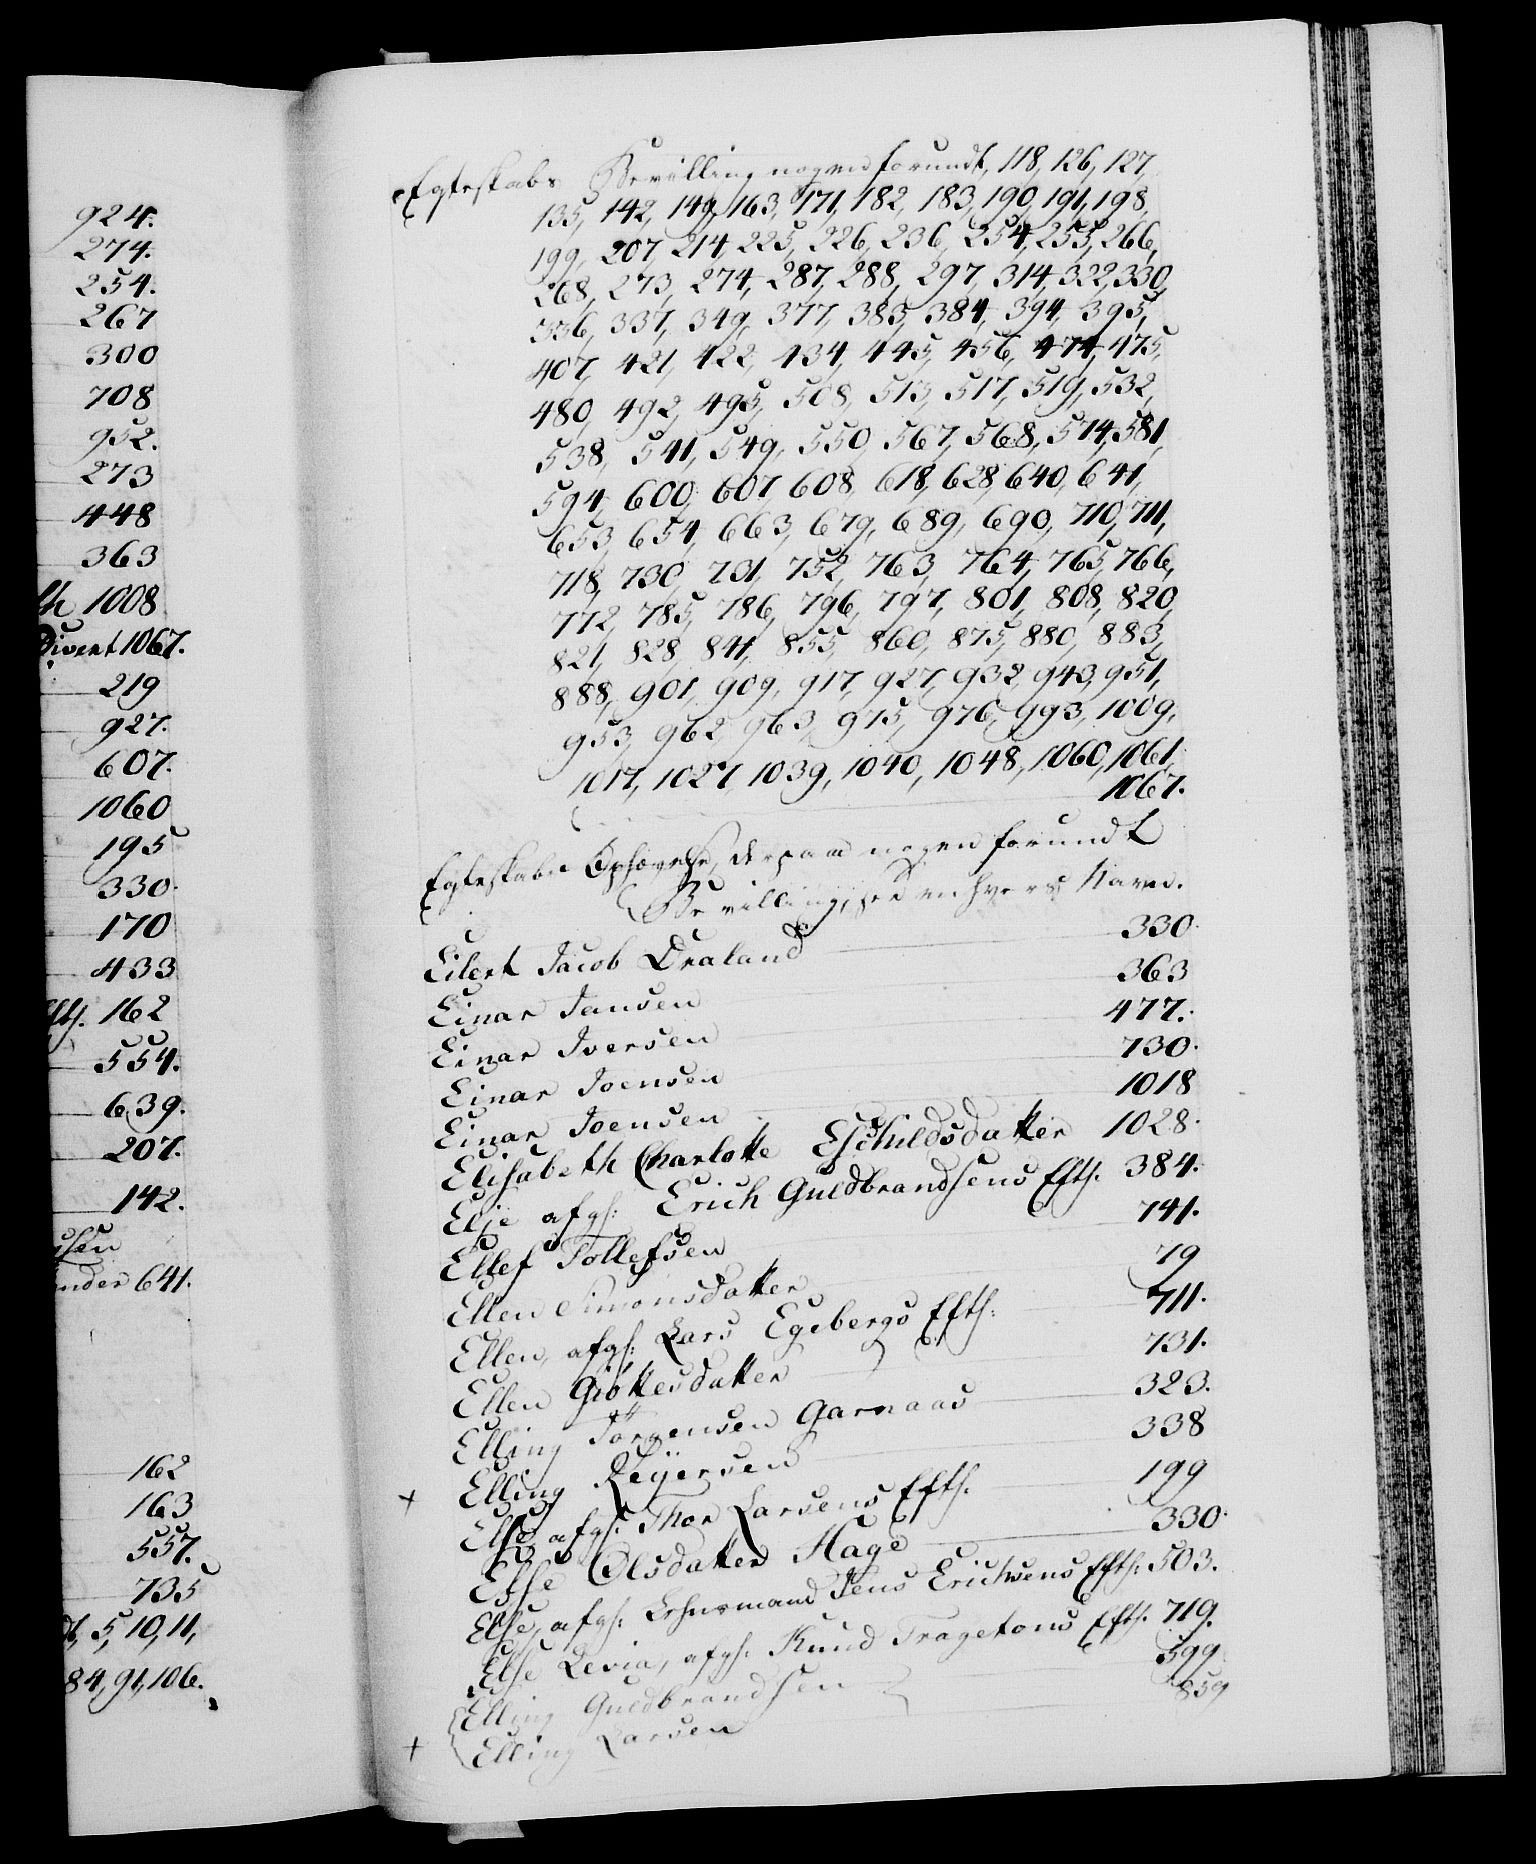 924.
274.
254.
267
300
708
952.
273
448
363
1008
Divert 1067.
219
927.
607.
1060
195
330.
170
433
Efth. 162
554.
639.
207.
142.
641.
162
163
557.
735
5, 10, 11,
84, 91, 106.
Egteskabs Bevilling nogen forundt, 118, 126, 127,
135, 142, 149, 163, 171, 182, 183, 190, 191, 198,
199, 207, 214, 225, 226, 236, 254, 255, 266,
268, 273, 274, 287, 288, 297, 314, 322, 330,
336, 337, 349, 377, 383, 384, 394, 395,
407, 421, 422, 434, 445, 456, 474, 475,
480, 492, 495, 508, 513, 517, 519, 532,
538, 541, 549, 550, 567, 568, 574, 581,
594, 600, 607, 608, 618, 628, 640, 641,
653, 654, 663, 679, 689, 690, 710, 711,
718, 730, 731, 752, 763, 764, 765, 766,
772, 785, 786, 796, 797, 801, 808, 820,
821, 828, 841, 855, 860, 875, 880, 883,
888, 901, 909, 917, 927, 932, 943, 951,
953, 962, 963, 975, 976, 993, 1009,
1017, 1027, 1039, 1040, 1048, 1060, 1061,
1067.
Egteskabs Ophævelse, derpaa nogen forundt
Bevilling, see enhvers Navn.
Eilert Jacob Draland 330.
Einar Jansen 363
Einar Iversen 477.
Einar Joensen 730.
Einar Joensen 1018
Elisabeth Charlotte Eschildsdatter 1028.
Elje afgh: Erich Guldbrandsens Efth. 384.
Ellef Tollefsen 741.
Ellen Simonsdatter 79
Ellen, afgh: Lars Egebergs Efth: 711.
Ellen Giöttesdatter 731.
Elling Jörgensen Garnaas 323.
Elling Reyersen 338
+ Else, afgh: Thor Larsens Efth. 199
Else Olsdatter Hage 330.
Else, afgh: Lehnsmand Jens Erichsens Efth: 503.
Else Levia, afgh: Knud Tragetons Efth. 719.
Elling Guldbrandsen 599.
+ Elling Larsen 859